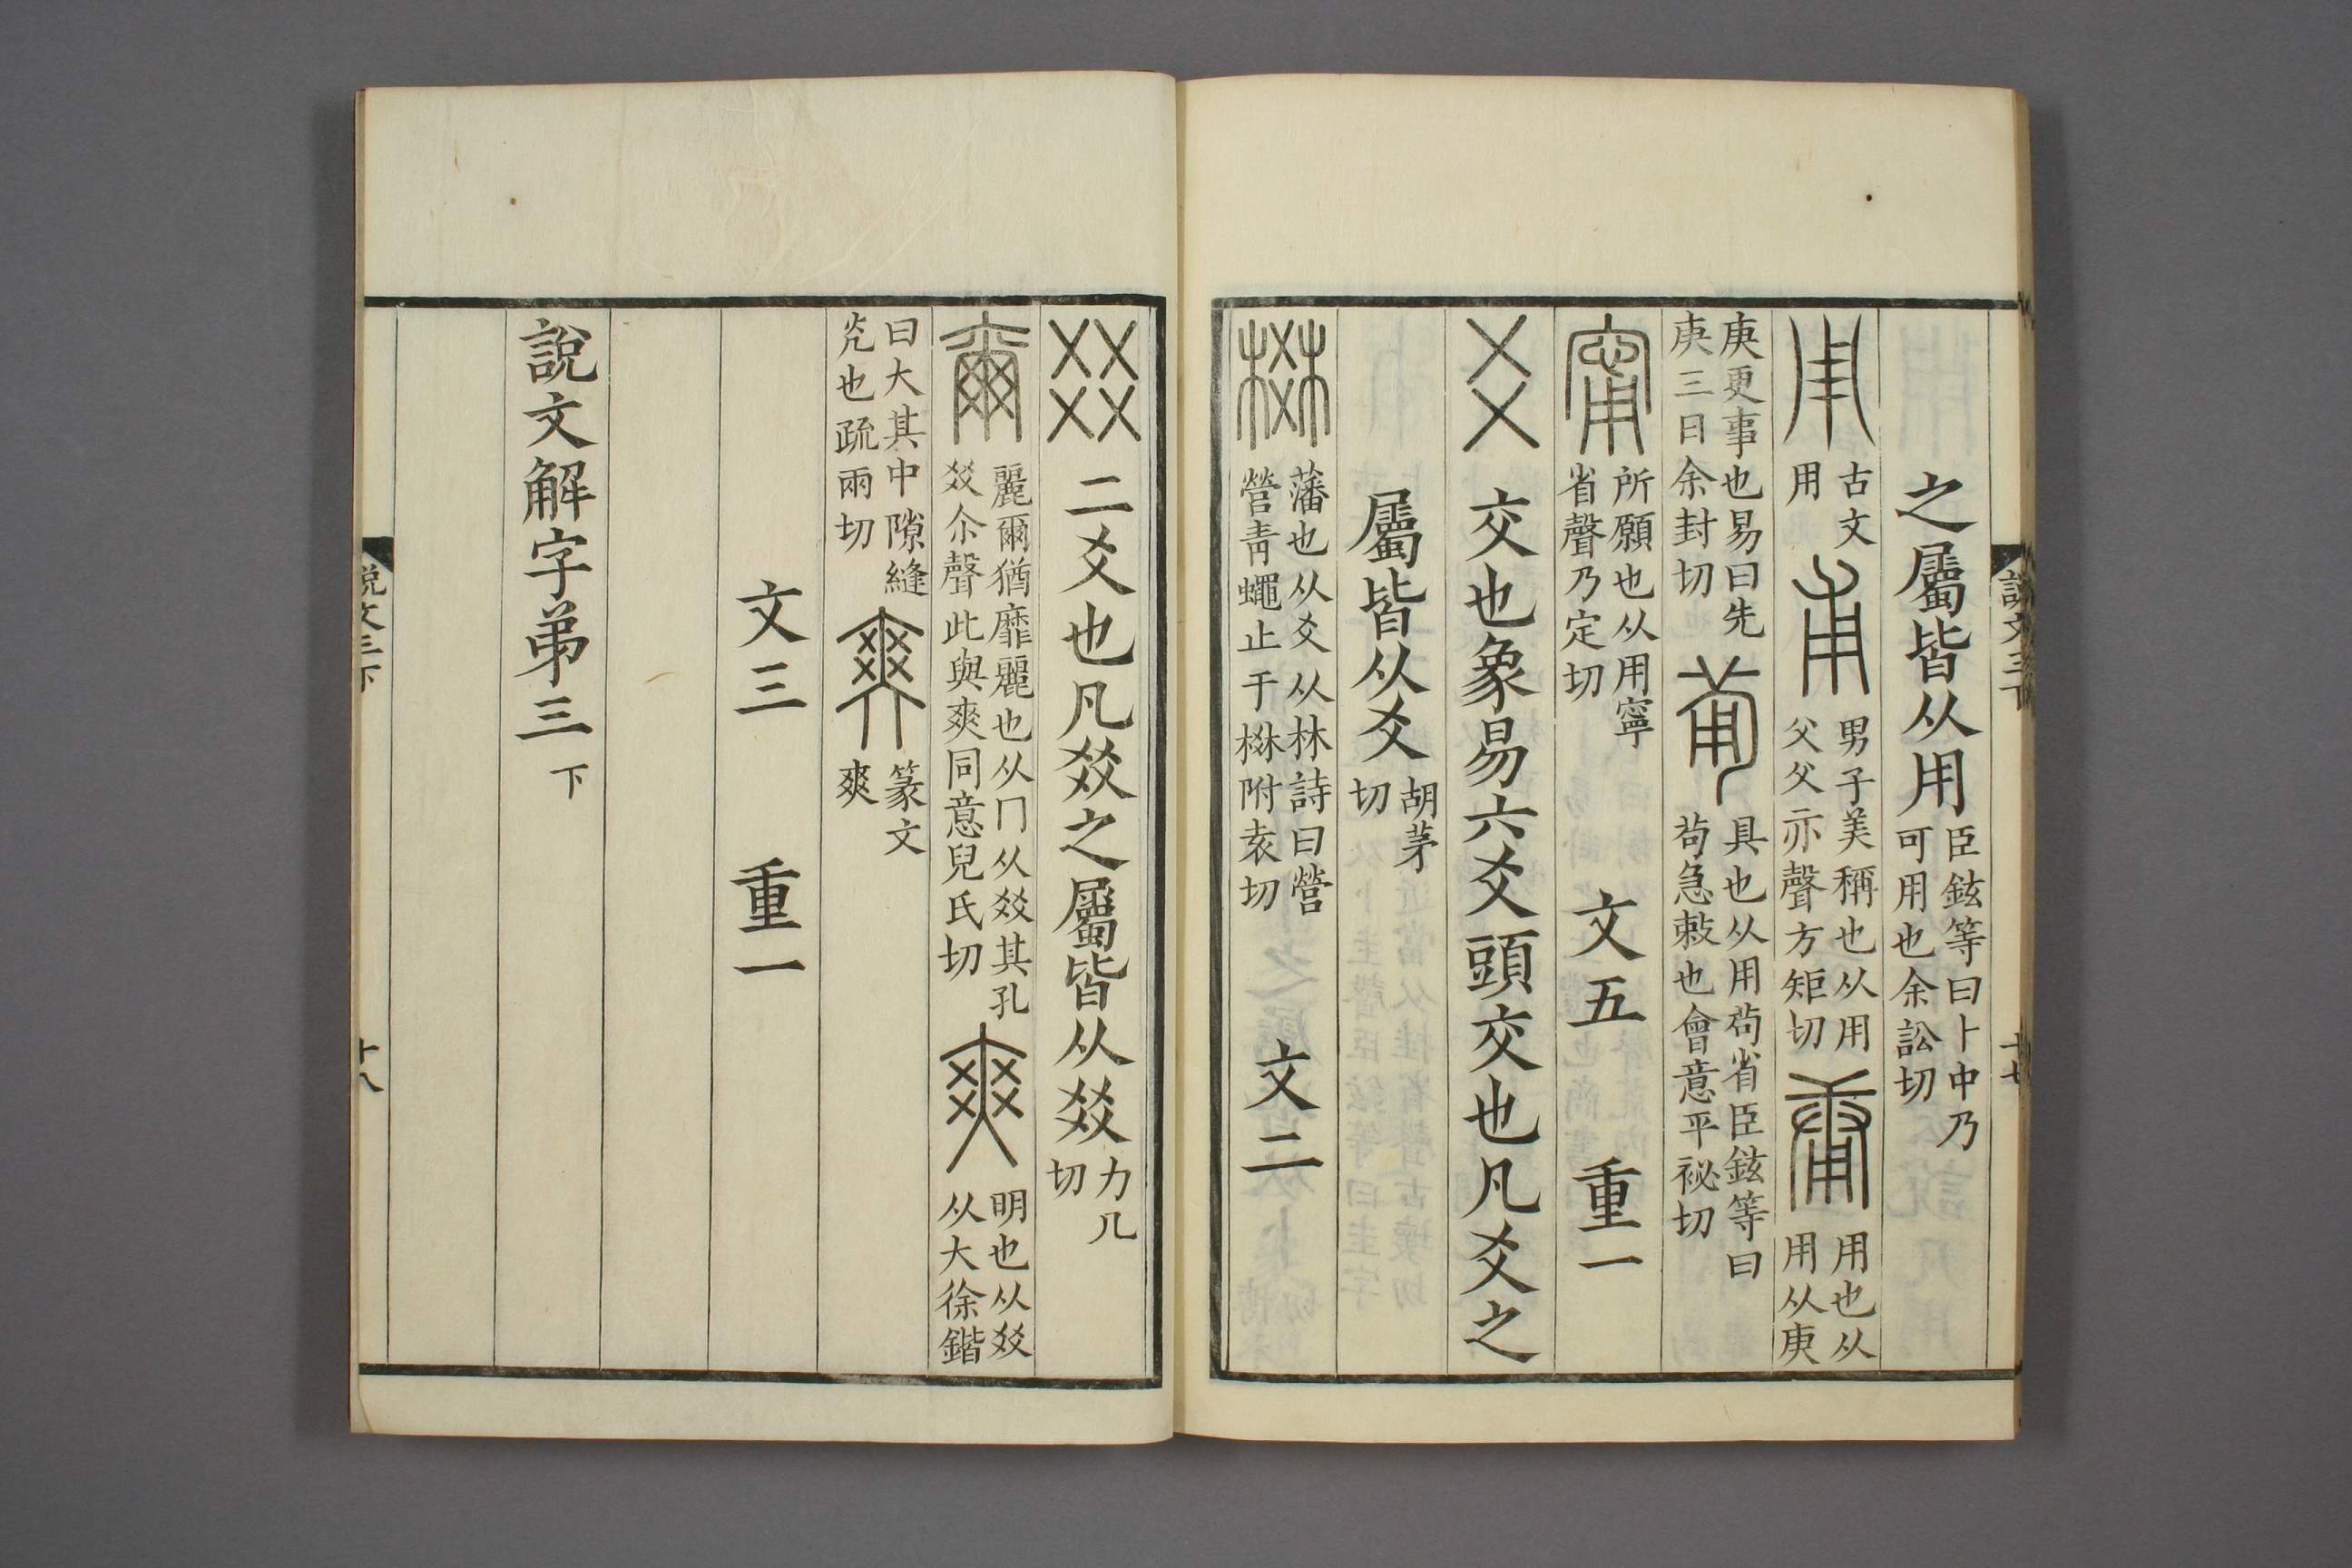 之屬皆从用臣鉉等曰卜中乃可用也余訟切
𠂵古文用甫男子美稱也从用父父亦聲方矩切庸用也从用从庚
庚更事也易曰先庚三日余封切𤰈具也从用苟省臣鉉等曰苟急敕也會意平祕切
甯所願也从用寧省聲乃定切 文五 重一
爻交也象易六爻頭交也凡爻之
屬皆从爻胡茅切
棥藩也从爻从林詩曰營營青蠅止于棥附袁切 文二
㸚二爻也凡㸚之屬皆从㸚力几切
爾麗爾猶靡麗也从冂从㸚其孔㸚尒聲此與爽同意兒氏切爽明也从㸚从大徐鍇
曰大其中隙縫光也疏兩切𤕤篆文爽
文三 重一
說文解字弟三下
說文三下
十七
說文三下
十八